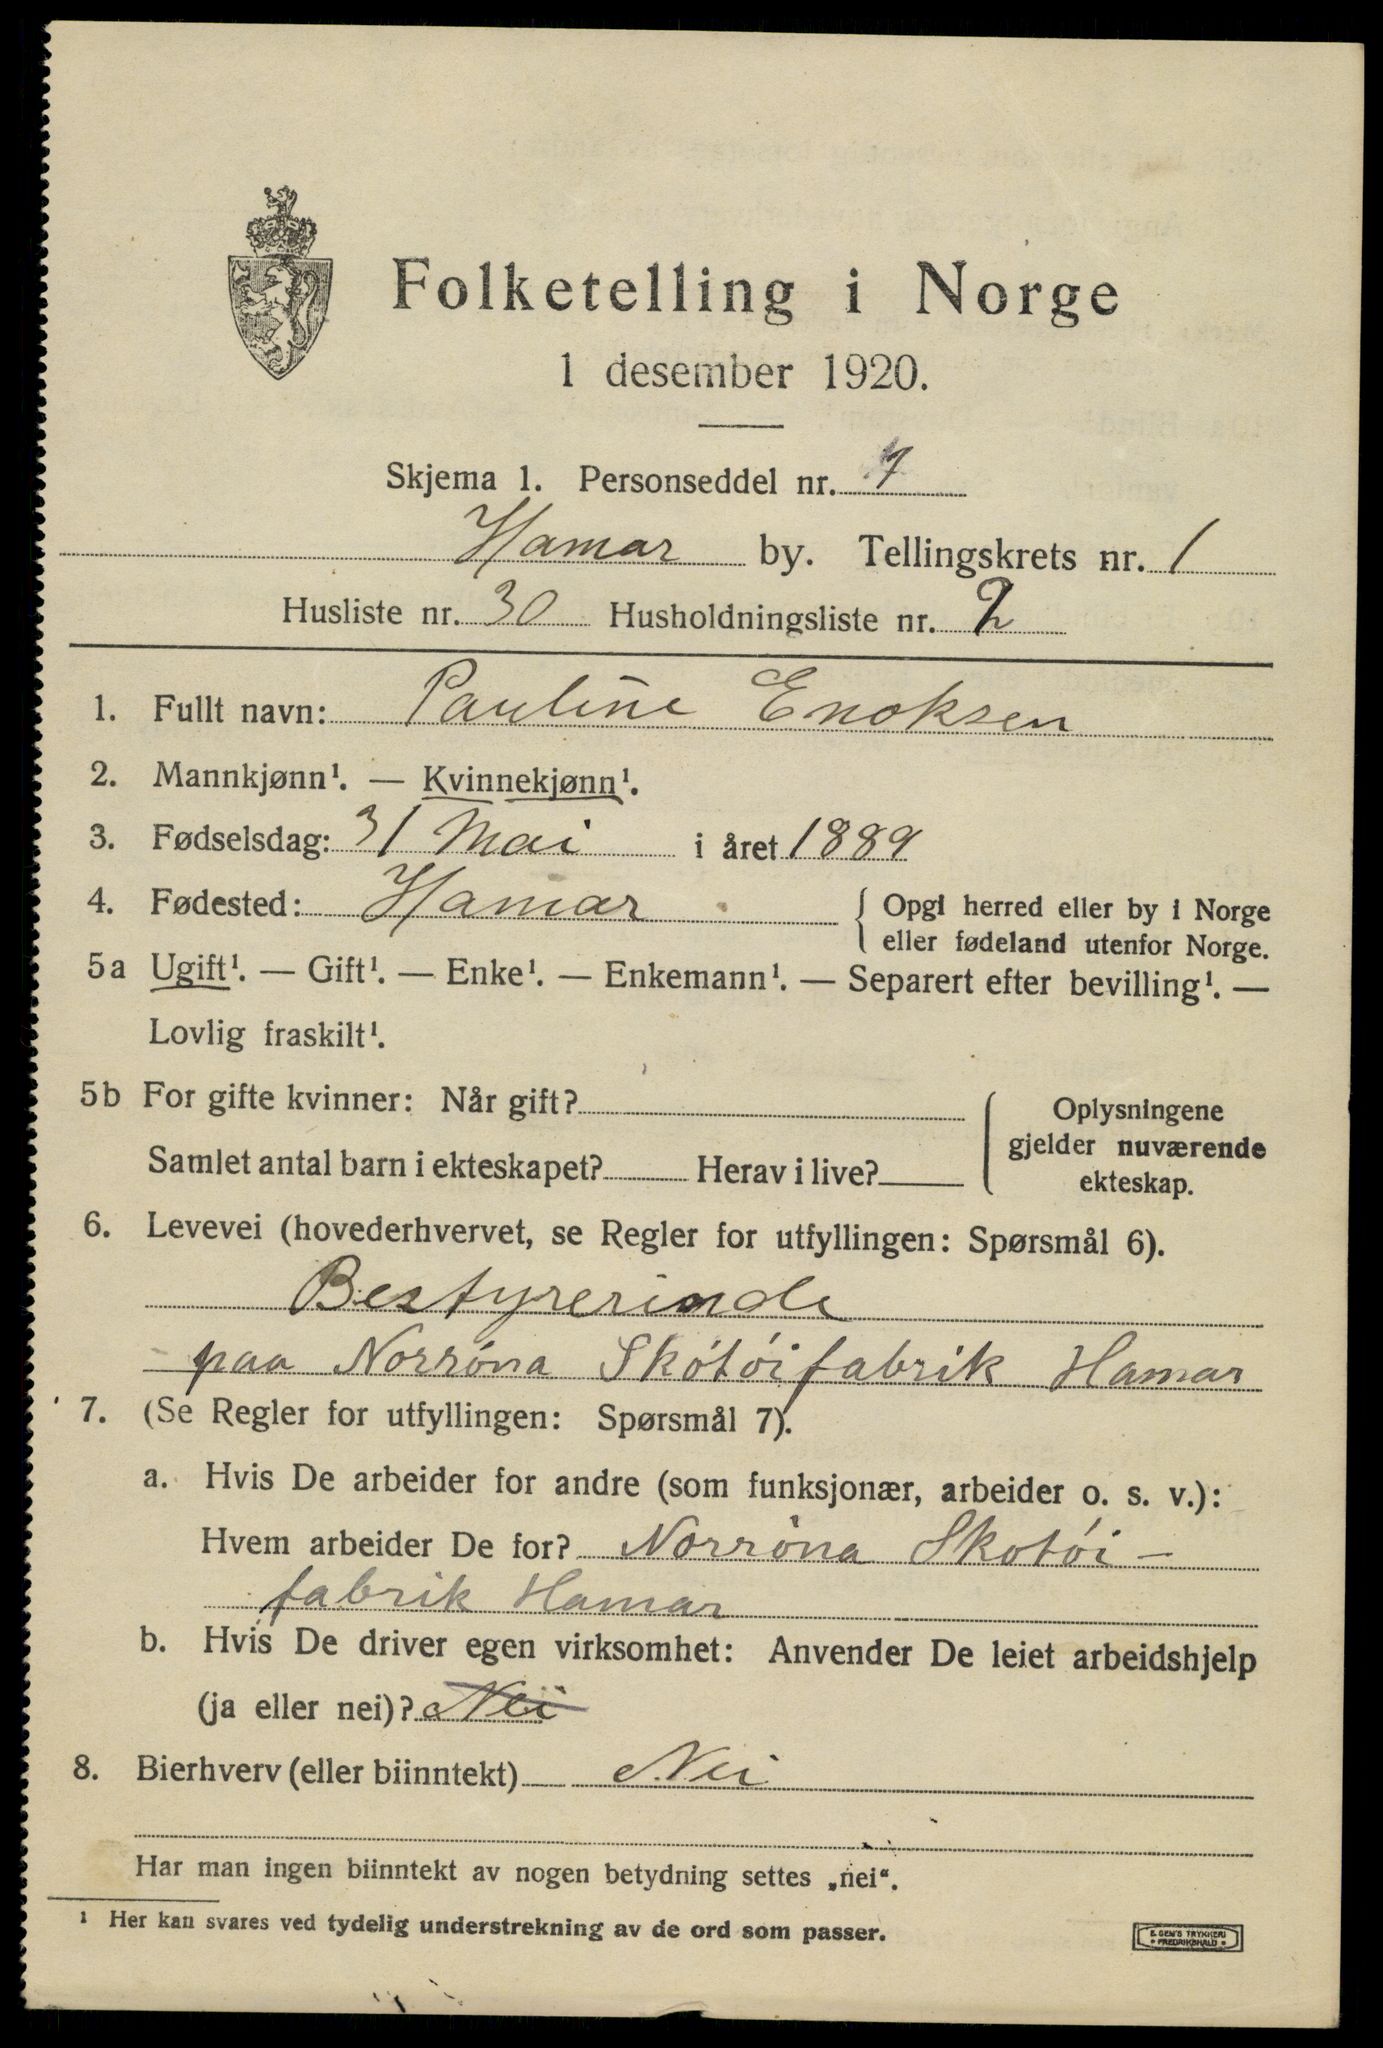 Folketelling i Norge
1 desember 1920.
Skjema 1. Personseddel nr. 7
Hamar by. Tellingskrets nr. 1
Husliste nr. 30 Husholdningsliste nr. 2
1. Fullt navn: Pauline Enoksen
2. Mannkjønn¹. — Kvinnekjønn¹.
3. Fødselsdag: 31 Mai i året 1889
4. Fødested: Hamar { Opgi herred eller by i Norge
eller fødeland utenfor Norge.
5a Ugift¹. — Gift¹. — Enke¹. — Enkemann¹. — Separert efter bevilling¹. —
Lovlig fraskilt¹.
5b For gifte kvinner: Når gift? { Oplysningene
gjelder nuværende
Samlet antal barn i ekteskapet? Herav i live?
ekteskap.
6. Levevei (hovederhvervet, se Regler for utfyllingen: Spørsmål 6).
Bestyrerinde
paa Norröna Skötöifabrik Hamar
7. (Se Regler for utfyllingen: Spørsmål 7).
a. Hvis De arbeider for andre (som funksjonær, arbeider o. s. v.):
Hvem arbeider De for? Norröna Skotöi-
fabrik Hamar
b. Hvis De driver egen virksomhet: Anvender De leiet arbeidshjelp
(ja eller nei)? Nei
8. Bierhverv (eller biinntekt) Nei
Har man ingen biinntekt av nogen betydning settes „nei“.
¹ Her kan svares ved tydelig understrekning av de ord som passer.
E. SEM'S TRYKKERI
• FREDRIKSHALD •